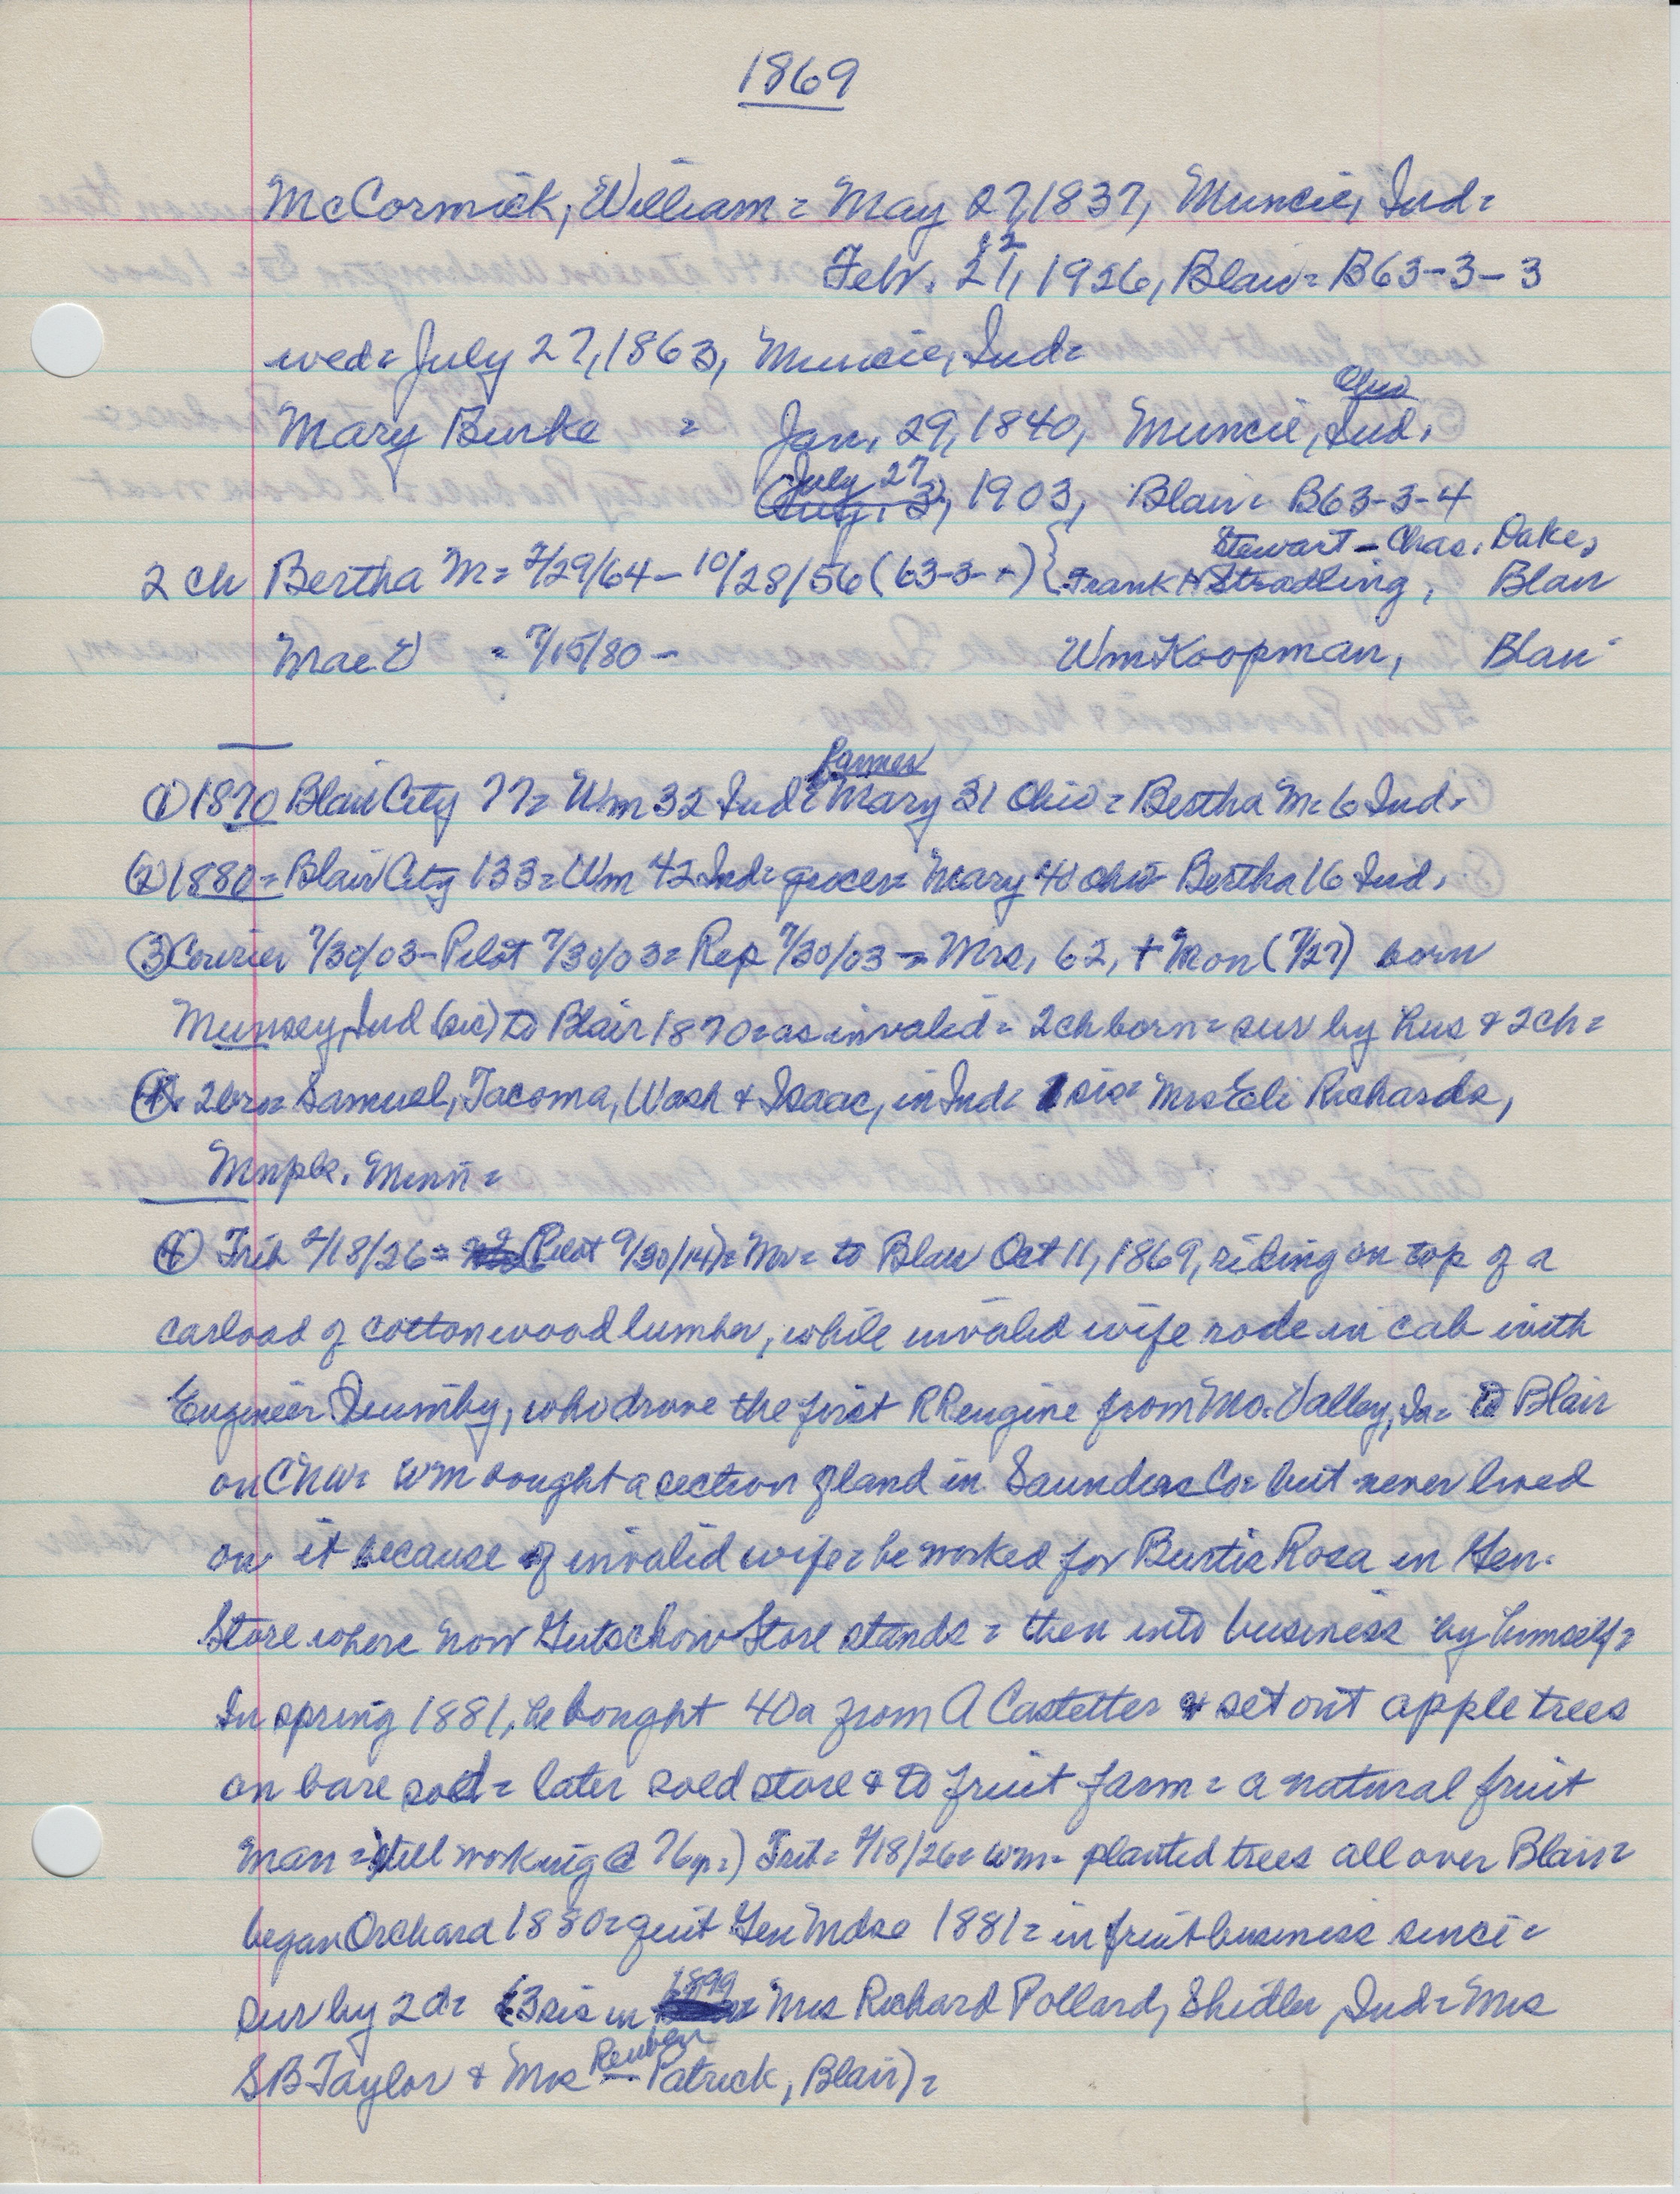 1869
McCormick, William = May 27, 1837, Muncie, Ind =
12
Feb. 21, 1926, Blair = B63-3-3
wed = July 27, 1863, Muncie, Ind =
Ohio
Mary Burke = Jan, 29, 1840, Muncie, Ind.
July 27
Aug. 3, 1903, Blair = B63-3-4
Stewart - Chas. Dake,
2 ch Bertha M = 2/29/64 - 10/28/56 (63-3- ) { Frank H Stradling, Blair
Mae E = 7/15/80 - Wm Koopman, Blair
farmer
① 1870 Blair City 77 = Wm 32 Ind = Mary 31 Ohio = Bertha M = 6 Ind.
② 1880 = Blair City 133 = Wm 42 Ind = grocer = Mary 40 Ohio - Bertha 16 Ind.
③ Courier 7/30/03 - Pilot 7/30/03 = Rep 7/30/03 = Mrs, 62, + Mon (7/27) born
Munsey, Ind (sic) to Blair 1870 = as invalid = 2 ch born = sur by hus & 2 ch =
2 bro = Samuel, Tacoma, Wash & Isaac, in Ind = 1 sis = Mrs Eli Richards,
Mnpls. Minn =
④ Trib 2/18/26 = (Pilot 9/30/14) = Mr = to Blair Oct 11, 1869, riding on top of a
carload of cottonwood lumber, while invalid wife rode in cab with
Engineer Quimby, who drove the first RR engine from Mo. Valley, Ia = to Blair
on CNW = Wm bought a section of land in Saunders Co = but never lived
on it because of invalid wife = he worked for Burtis Rosa in Gen.
Store where now Gutschow Store stands = then into business by himself =
In spring 1881, he bought 40a from A Castetter & set out apple trees
on bare sod = later sold store & to fruit farm = a natural fruit
man = still working @ 76 yr =) Trib = 2/18/26 = Wm = planted trees all over Blair =
began Orchard 1880 = quit Gen Mdse 1881 = in fruit business since =
sur by 2 d = (3 sis in 1899 = Mrs Richard Pollard, Shidler, Ind = Mrs
Reuben
SB Taylor & Mrs Patrick, Blair) =